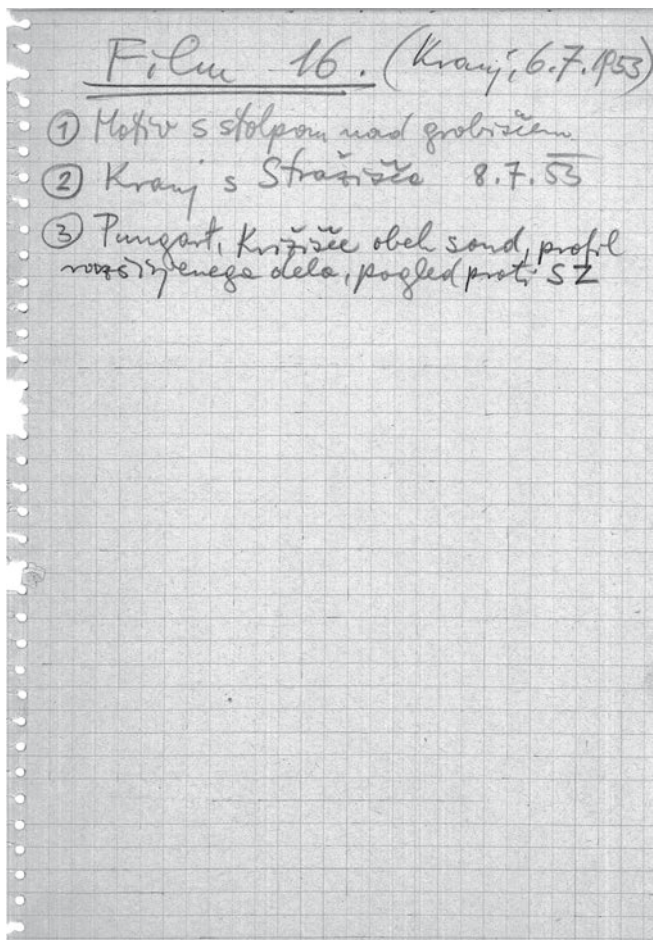 Film 16. (Kranj, 6.7.1953)
① Motiv s stolpom nad grobiščem
② Kranj s Stražišča 8.7.53
③ Pungart, Križišče obeh sond, profil
razširjenega dela, pogled proti SZ